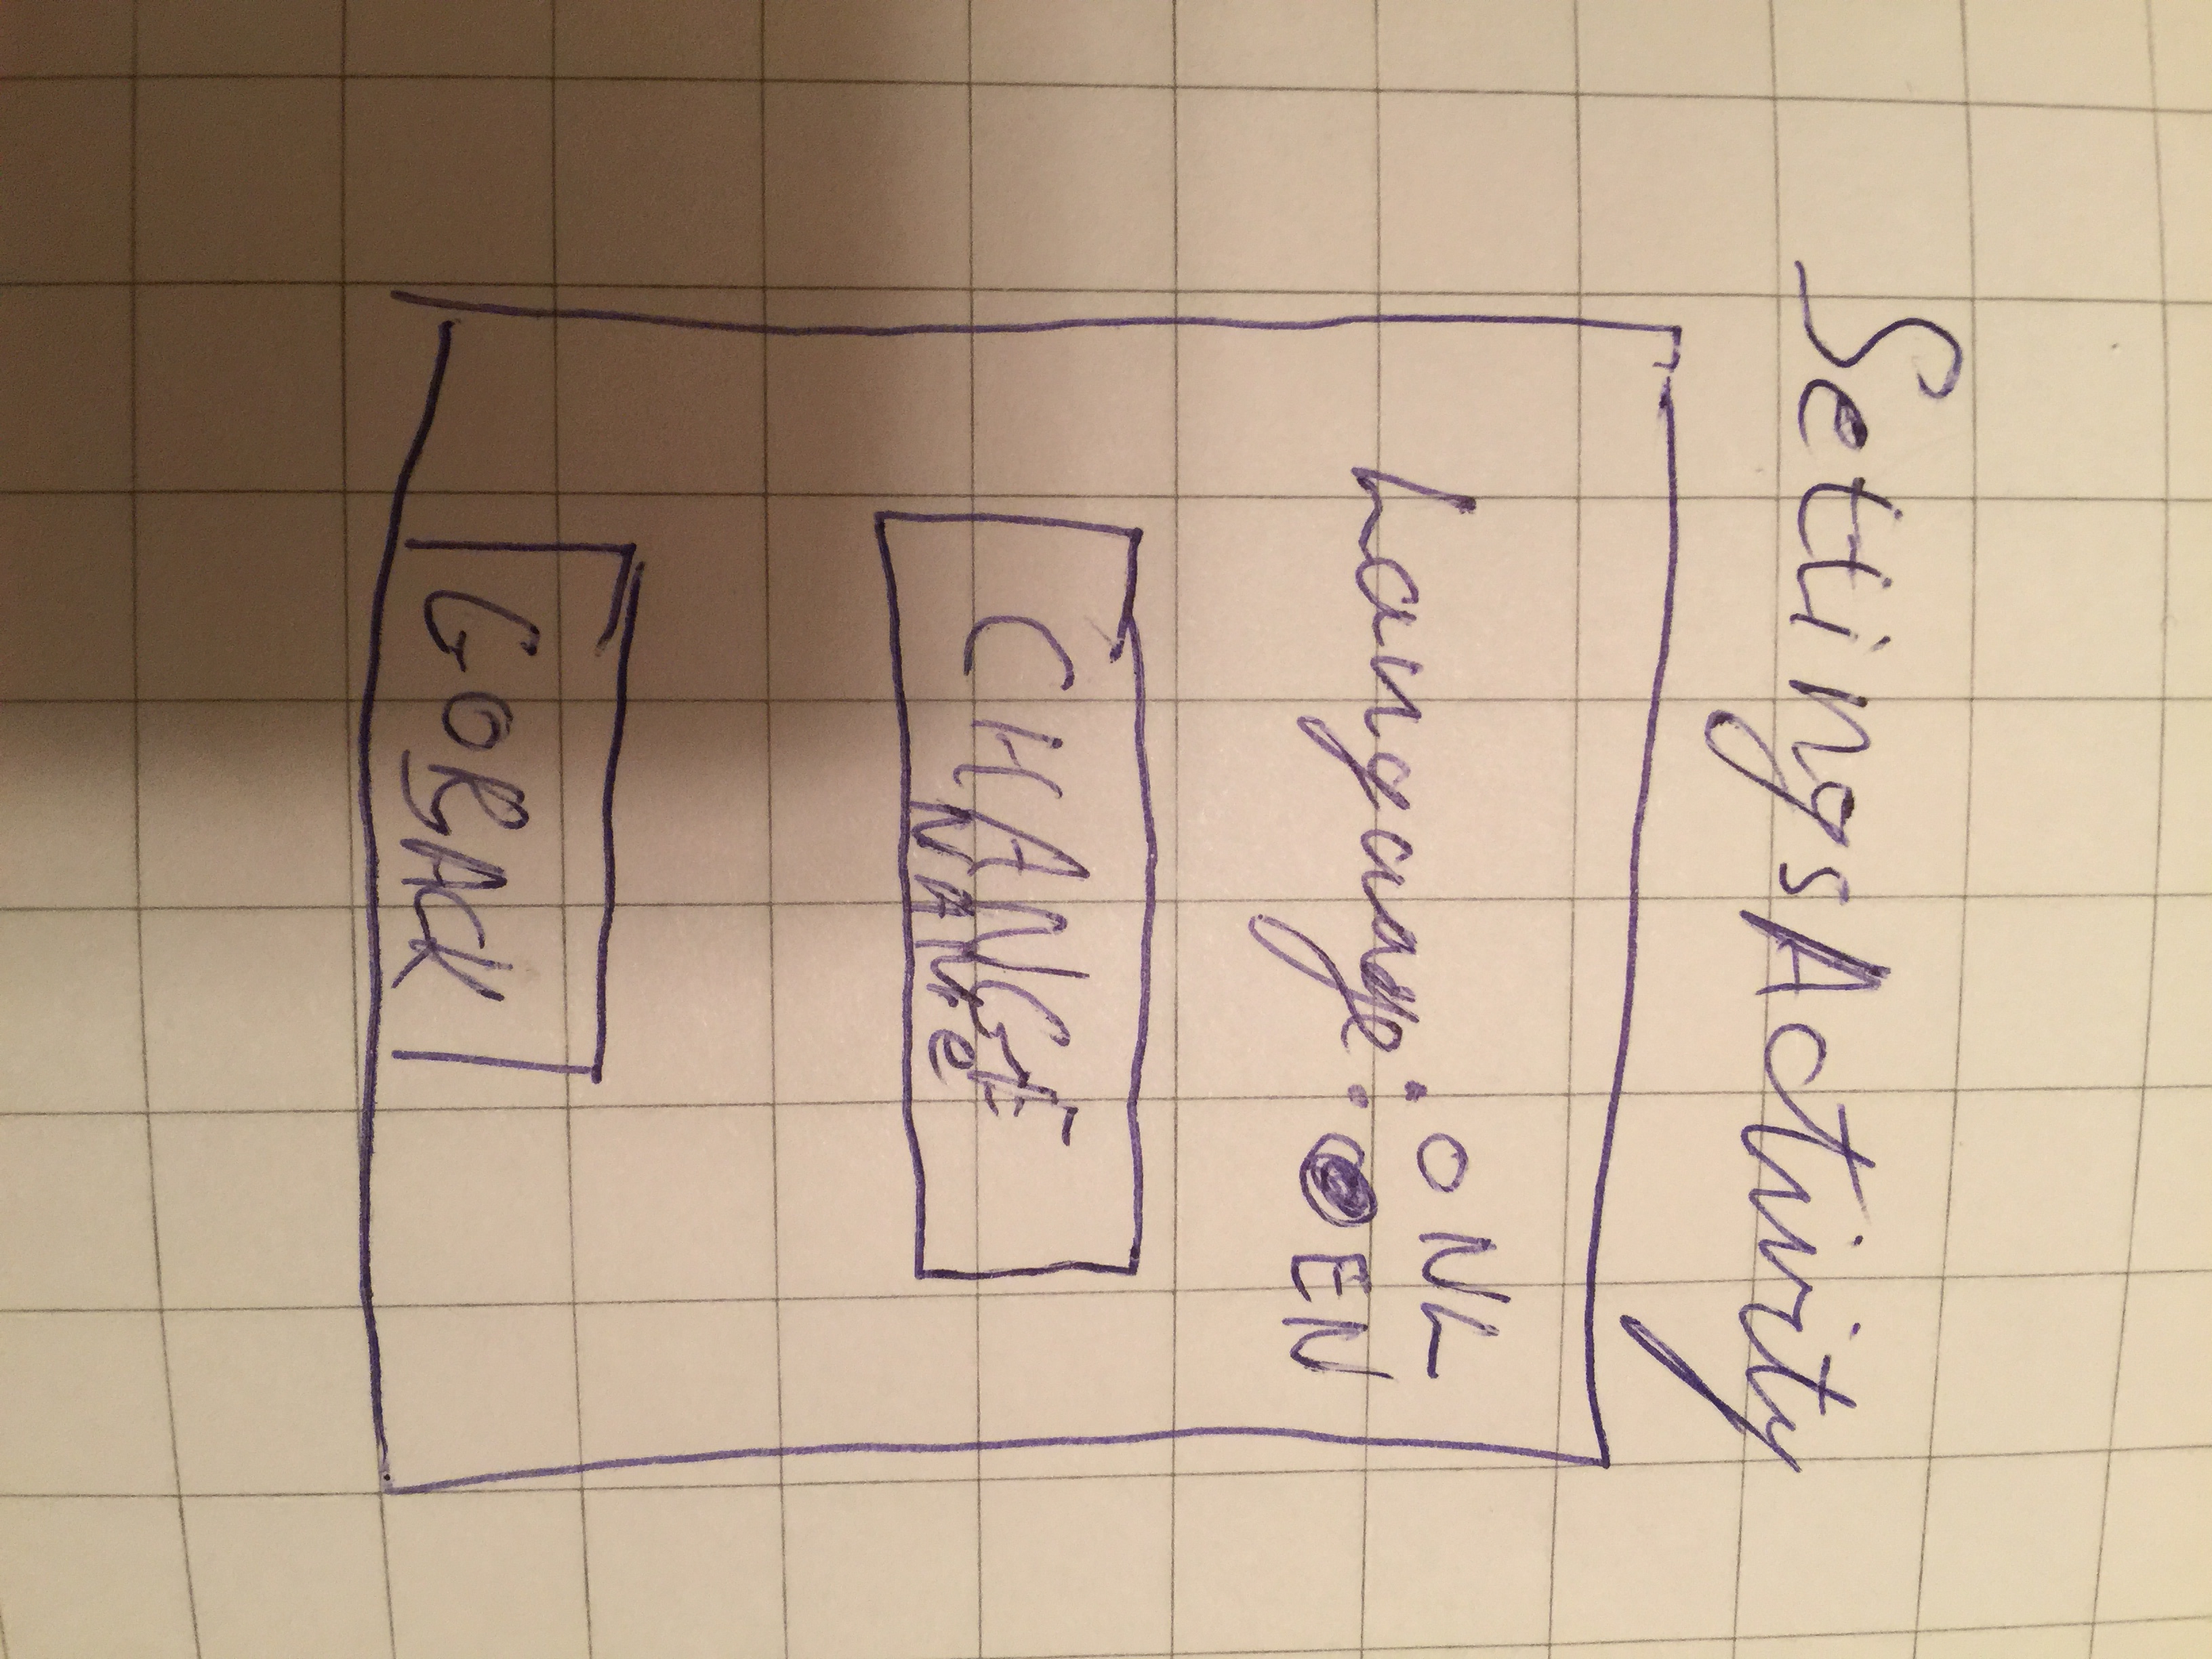 SettingsActivity
Language:
O NL
EN
CHANGE
NAME
GO BACK